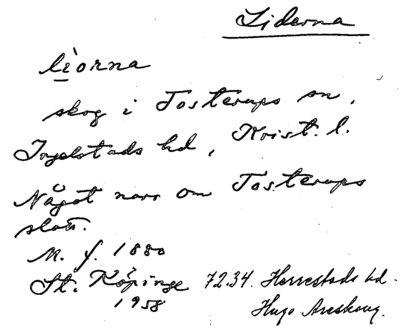 Liderna
lìorna
skog i Tosterups sn,
Ingelstads hd, Krist. l.
Något norr om Tosterups
slott.
M. f. 1880
St. Köpinge 7234. Herrestads hd.
1958
Hugo Areskoug.